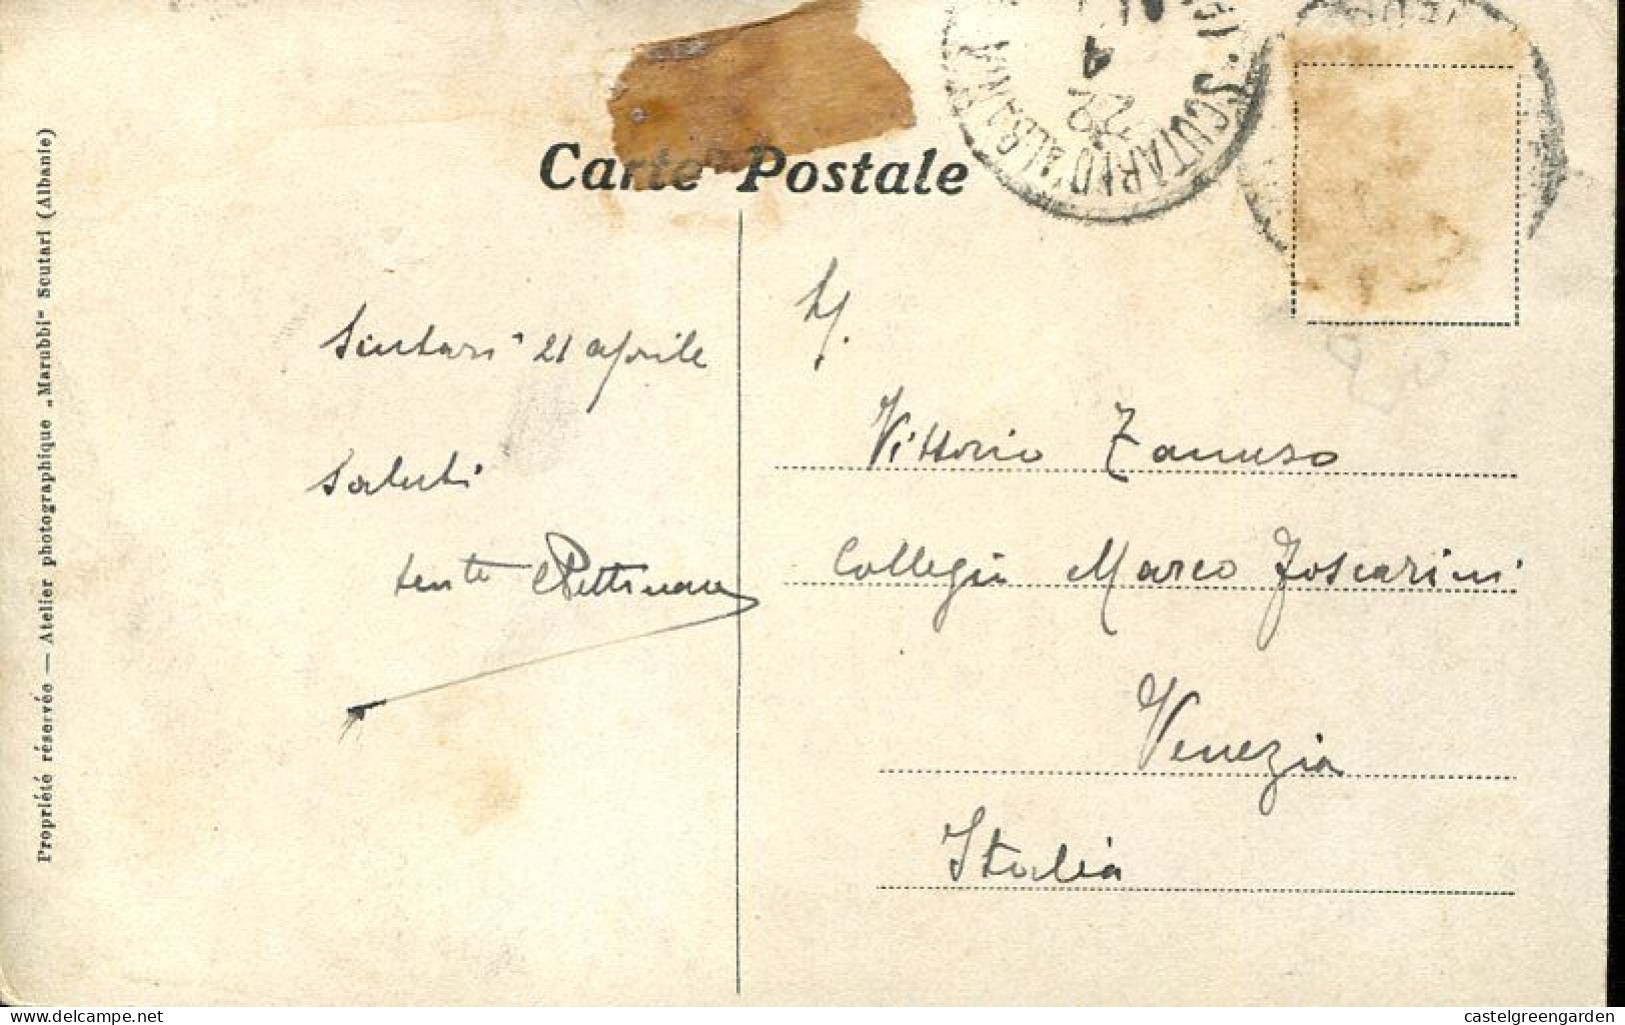 Carte Postale
SCUTARI D'ALBANIA
22 4
Propriété réservée — Atelier photographique „Marubbi" Scutari (Albanie)
Scutari 21 aprile
Saluti
tente
Vittorio Zanuso
Collegio Marco Foscarini
Venezia
Italia
delcampe.net
castelgreengarden